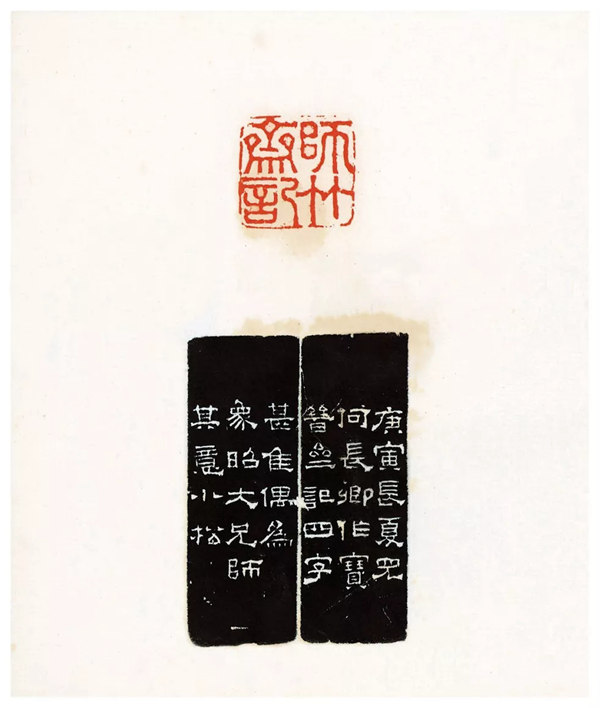 師竹
齋記
庚寅長夏見
何長卿作寶
晉亝記四字
甚佳偶爲
象昭大兄師
其意小松